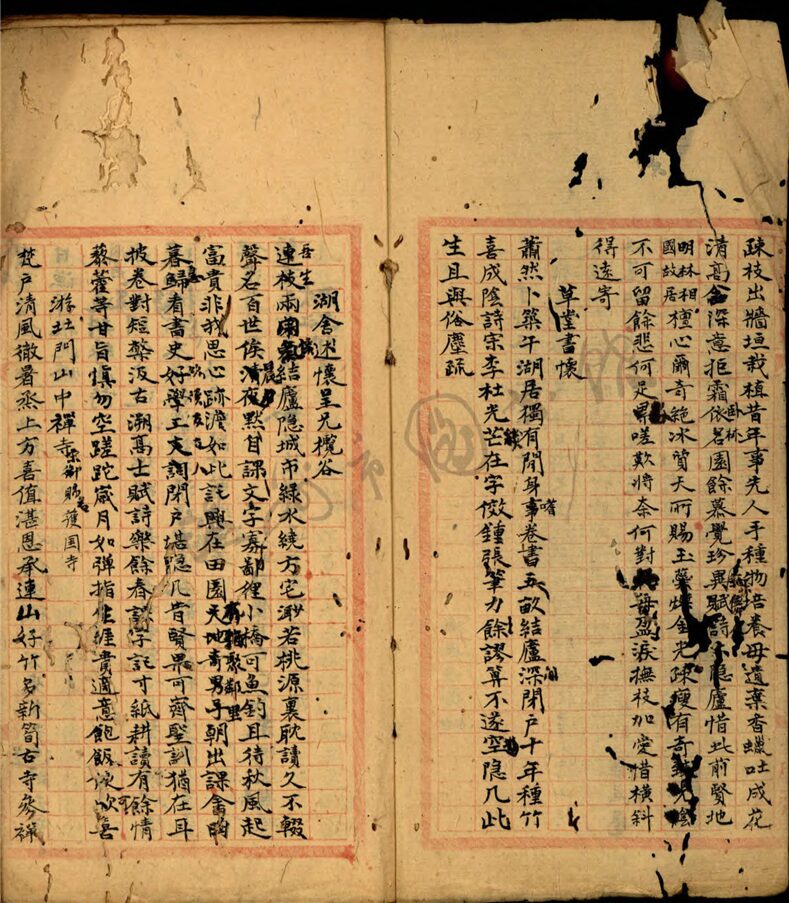 疎枝出牆垣栽植昔年事先人手種物培養毋遺棄香蠟吐成花
清高含深意拒霜依名園餘慕覺珍異賦詩 隱廬惜此前賢地
臥林
明林相國故居檀心爾奇絶冰質天所賜玉蘂燦金光疎瘦有奇
不可留餘悲何足 嗟歎將奈何對 盈淚撫枝加愛惜橫斜
得遠寄
草堂書懷
蕭然卜築午湖居獨有閒身 卷書五畝結廬深閉戶十年種竹
喜成陰詩宗李杜光芒在字倣鍾張筆力餘謬算不遂空隱几此
生且與俗塵疏
湖舍述懷呈兄欖谷
吾生
連枝兩 結廬隱城市綠水繞方宅渺若桃源裏耽讀久不輟
聲名百世俟 夜默自課文字寡鄙俚小橋可魚釣且待秋風起
富貴非我思心跡澹如此託興在田園天地奇男子朝出課畬
暮歸看書史好學工夫 閉戶堪隱几昔賢果可齊聖訓猶在耳
披卷對短檠汲古溯高士賦詩樂餘春 字託寸紙耕讀有餘情
藜藿等甘旨慎勿空蹉跎歲月如彈指 適意飽飯 善
游北門山中禪寺 賜 護國寺
梵戶清風徹暑烝上方喜值湛恩承連山好竹多新筍古寺參禪